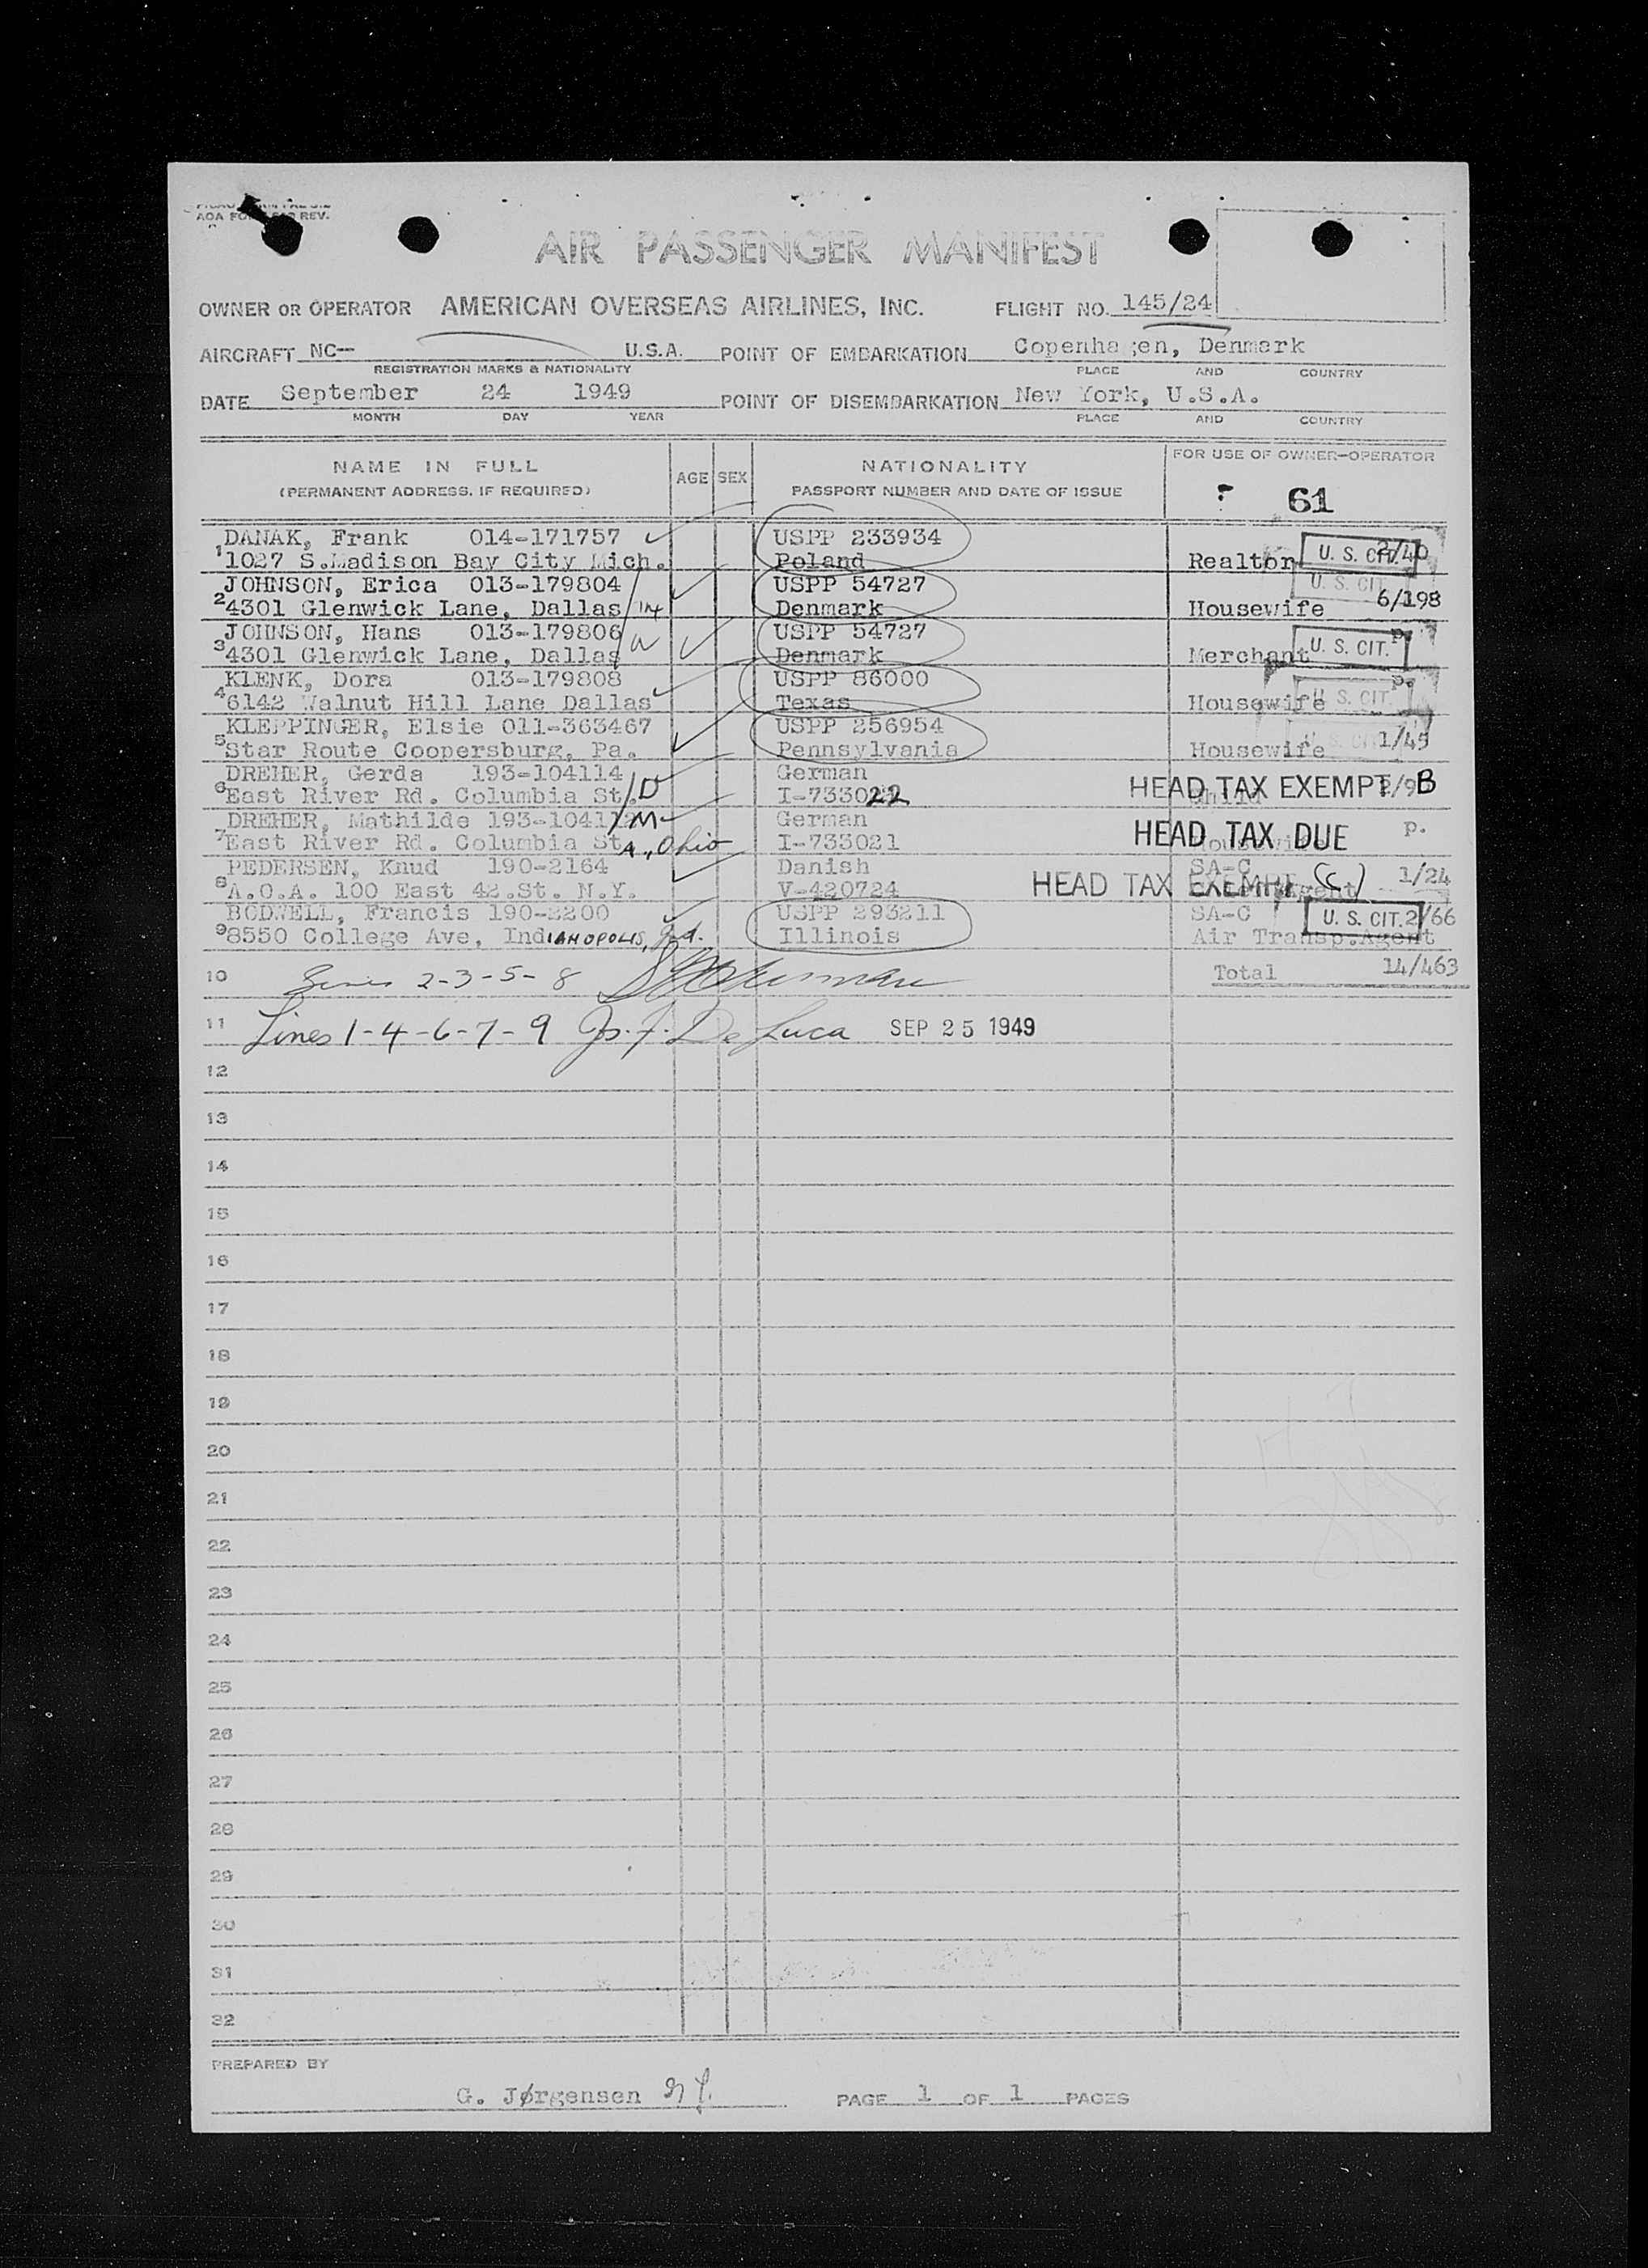 AOA FO REV.
AIR PASSENGER MANIFEST
OWNER OR OPERATOR AMERICAN OVERSEAS AIRLINES, INC. FLIGHT NO. 145/24
AIRCRAFT NC- U.S.A. POINT OF EMBARKATION Copenhagen, Denmark
REGISTRATION MARKS & NATIONALITY PLACE AND COUNTRY
DATE September 24 1949 POINT OF DISEMBARKATION New York, U.S.A.
MONTH DAY YEAR PLACE AND COUNTRY
NAME IN FULL AGE SEX NATIONALITY FOR USE OF OWNER-OPERATOR
(PERMANENT ADDRESS, IF REQUIRED) PASSPORT NUMBER AND DATE OF ISSUE 61
DANAK, Frank 014-171757 USPP 233934 2/40
1 1027 S.Madison Bay City Mich. Poland Realtor U. S. CIT.
JOHNSON, Erica 013-179804 USPP 54727 U. S. CIT. 6/198
2 4301 Glenwick Lane, Dallas M Denmark Housewife
JOHNSON, Hans 013-179806 USPP 54727 p.
3 4301 Glenwick Lane, Dallas W Denmark Merchant U. S. CIT.
KLENK, Dora 013-179808 USPP 86000 p.
4 6142 Walnut Hill Lane Dallas Texas Housewife U. S. CIT.
KLEPPINGER, Elsie 011-363467 USPP 256954 1/45
5 Star Route Coopersburg, Pa. Pennsylvania Housewife U. S. CIT.
DREHER, Gerda 193-104114 German HEAD TAX EXEMPT B
6 East River Rd. Columbia St. D I-733022 Child
DREHER, Mathilde 193-104112 M German HEAD TAX DUE p.
7 East River Rd. Columbia Sta., Ohio I-733021 Housewife
PEDERSEN, Knud 190-2164 Danish SA-C 1/24
8 A.O.A. 100 East 42.St. N.Y. V-420724 HEAD TAX EXEMPT (C) Agent
BODWELL, Francis 190-2200 USPP 293211 SA-C U. S. CIT. 2/66
9 8550 College Ave, IndIANOPOLIS, Ind. Illinois Air Transp.Agent
10 Lines 2-3-5-8 Total 14/463
11 Lines 1-4-6-7-9 Js. J. De Luca SEP 25 1949
12
13
14
15
16
17
18
19
20
21
22
23
24
25
26
27
28
29
30
31
32
PREPARED BY
G. Jørgensen PAGE 1 OF 1 PAGES